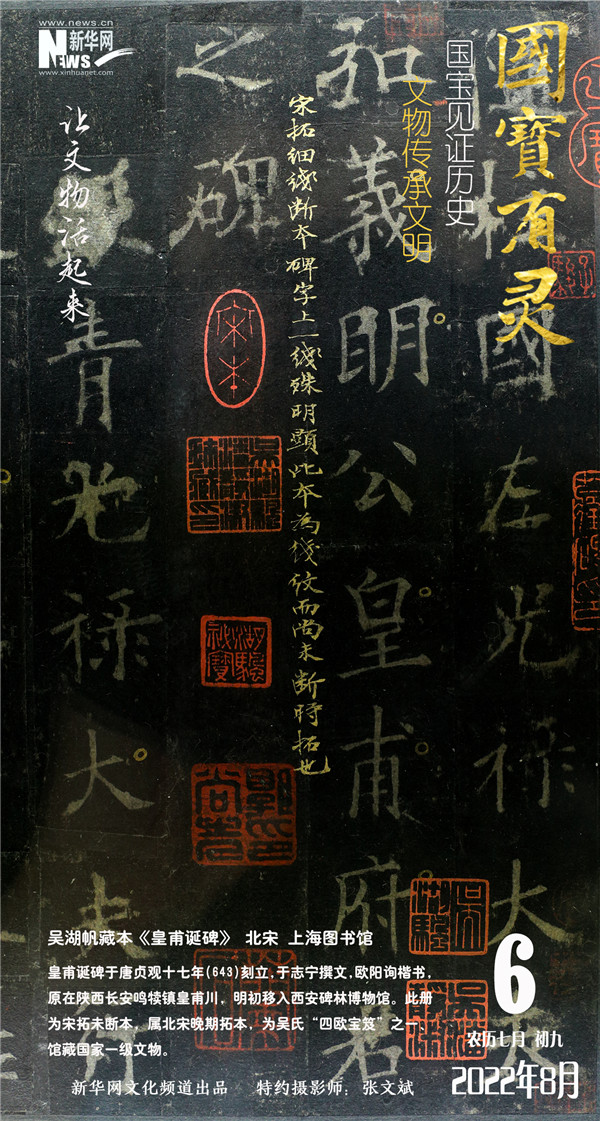 www.news.cn
NEWS 新华网
www.xinhuanet.com
國寶有灵
国宝见证历史
文物传承文明
让文物活起来
柱國左光禄大夫
弘義明公皇甫府君
之碑
青光禄大夫
宋拓細綫斷本碑字上一綫殊明顯此本為綫紋而尚未斷時拓也
宋本
湖颿祕寶
吳湖颿
吴湖帆藏本《皇甫诞碑》 北宋 上海图书馆
皇甫诞碑于唐贞观十七年(643)刻立,于志宁撰文,欧阳询楷书,
原在陕西长安鸣犊镇皇甫川，明初移入西安碑林博物馆。此册
为宋拓未断本，属北宋晚期拓本，为吴氏“四欧宝笈”之一、
馆藏国家一级文物。
新华网文化频道出品 特约摄影师：张文斌
6
农历七月 初九
2022年8月